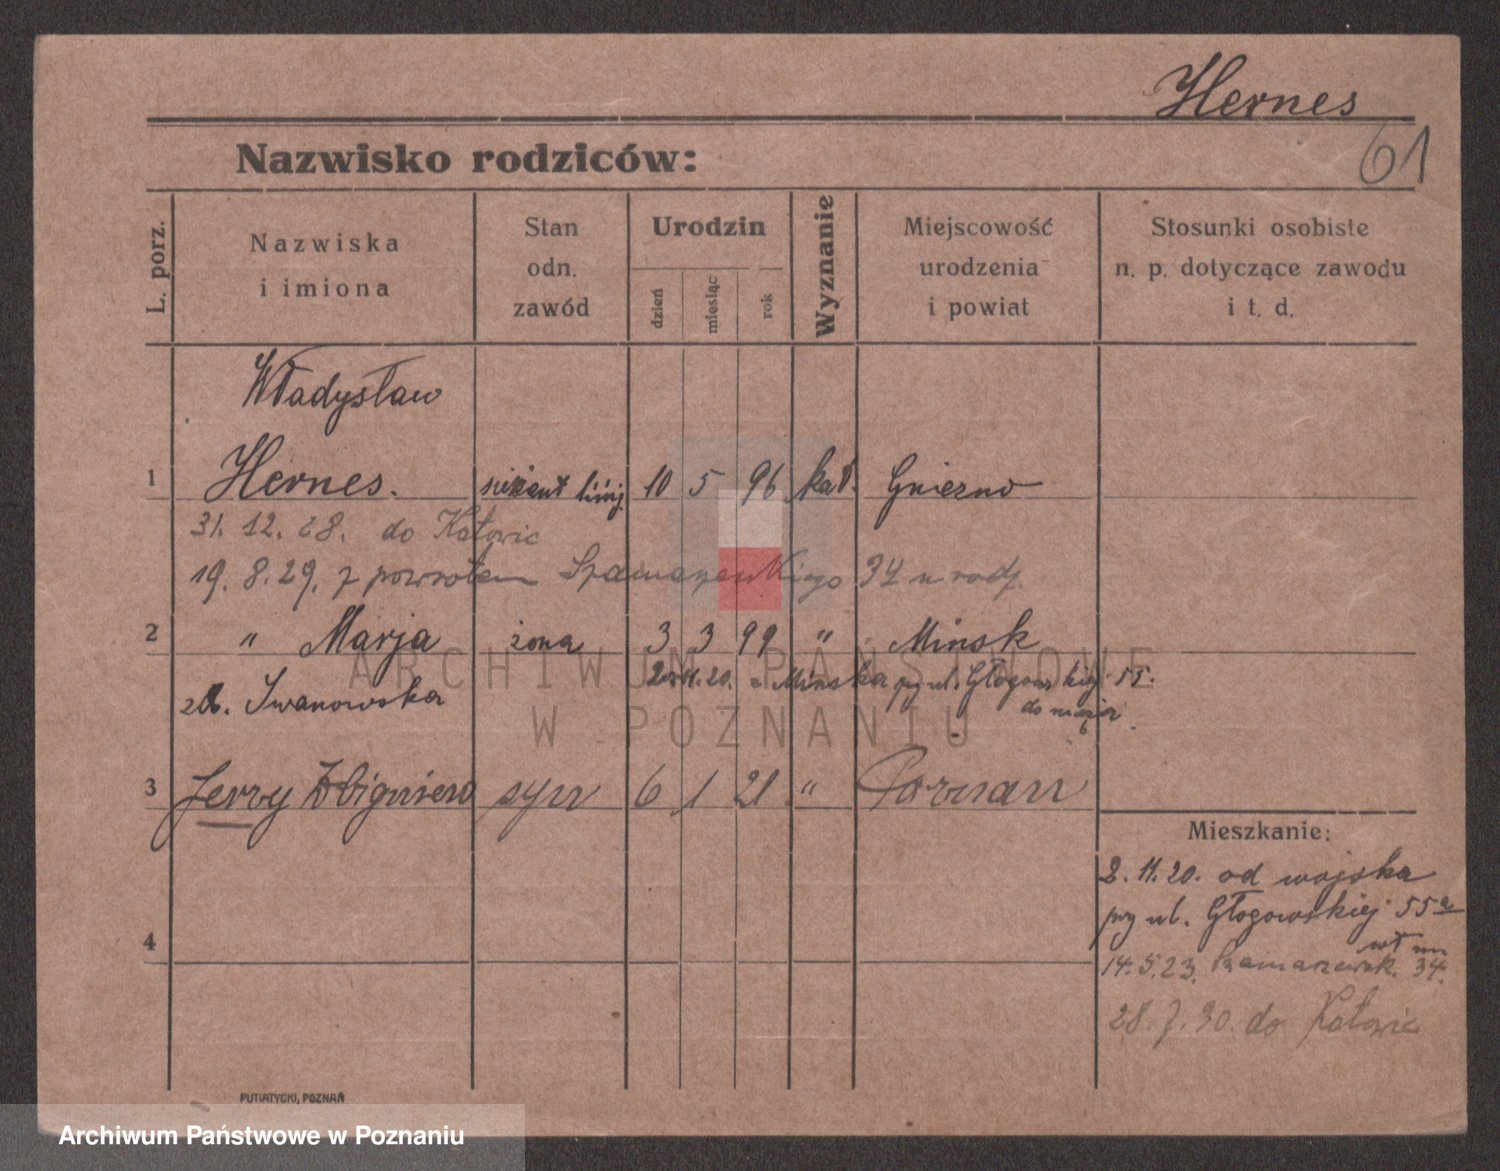 Hernes
61
Nazwisko rodziców:
L. porz.
Nazwiska
i imiona
Stan
odn.
zawód
Urodzin
dzień
miesiąc
rok
Wyznanie
Miejscowość
urodzenia
i powiat
Stosunki osobiste
n. p. dotyczące zawodu
i t. d.
Władysław
1 Hernes. 10 5 96 kat. Gniezno
31. 12. 28. do Katowic
19. 8. 29. z powrotem 34 u rodz.
2 " Marja żona 3 3 99 " Minsk
Iwanowska
11. 20. z Mińska przy ul. Głogowskiej 55.
do męża
3 Jerzy Zbigniew syn 6 1 21 " Poznań
Mieszkanie:
2. 11. 20. od wojska
przy ul. Głogowskiej 55a
14. 5. 23. 34.
28. 7. 30. do Katowic
4
PUTIATYCKI, POZNAŃ
ARCHIWUM PAŃSTWOWE
W POZNANIU
Archiwum Państwowe w Poznaniu